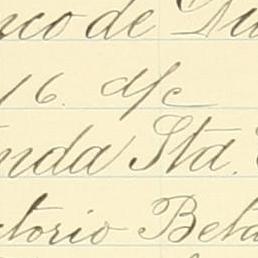 nco de
16. d/c
nda Sta.
torio Beta